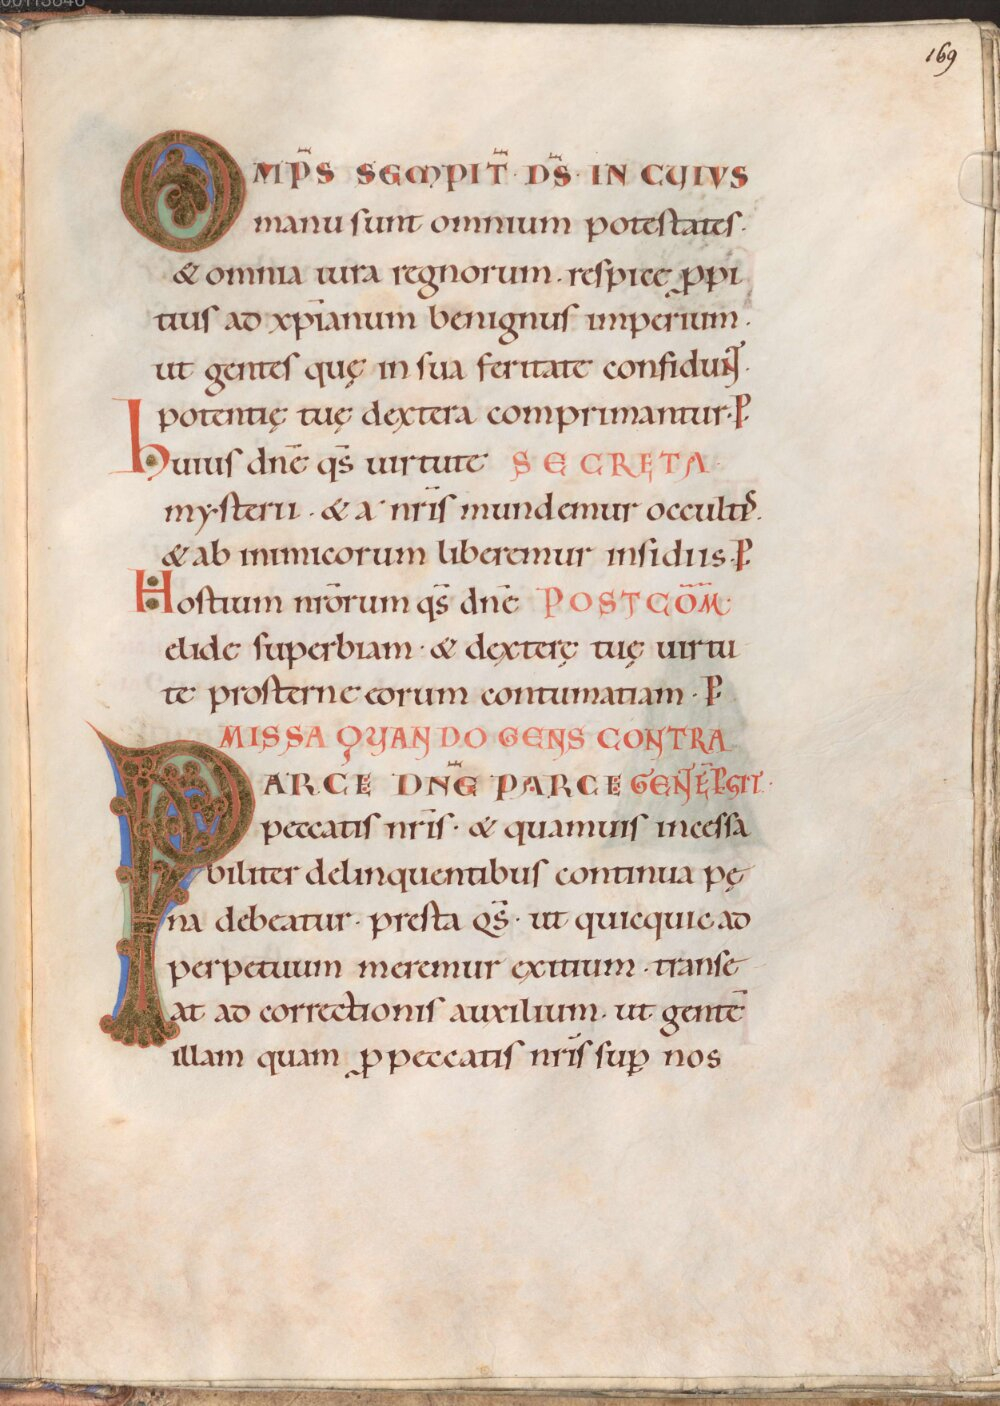 169
OMP̄S SEMPIT̄ · DS̄ · IN CUIUS
manu sunt omnium potestates ·
& omnia iura regnorum · respice ꝓpi
tius ad xp̄ianum benignus imperium ·
ut gentes quę in sua feritate confidunt ·
potentię tuę dextera comprimantur · P̄
huius dn̄e qs̄ uirtute SECRETA
mysterii · & a nr̄is mundemur occultis ·
& ab inimicorum liberemur insidiis · P̄
Hostium nr̄orum qs̄ dn̄e POSTCOM̄
elide superbiam · & dexterę tuę uirtu
te prosterne eorum contumatiam · P̄
MISSA QUANDO GENS CONTRA
PARCE DN̄E PARCE GENTĒ P̄GIT ·
peccatis nr̄is · & quamuis incessa
biliter delinquentibus continua pę
na debeatur · presta qs̄ · ut quicquic ad
perpetuum meremur exitium · transe
at ad correctionis auxilium · ut gentē
illam quam ꝓ peccatis nr̄is suꝑ nos